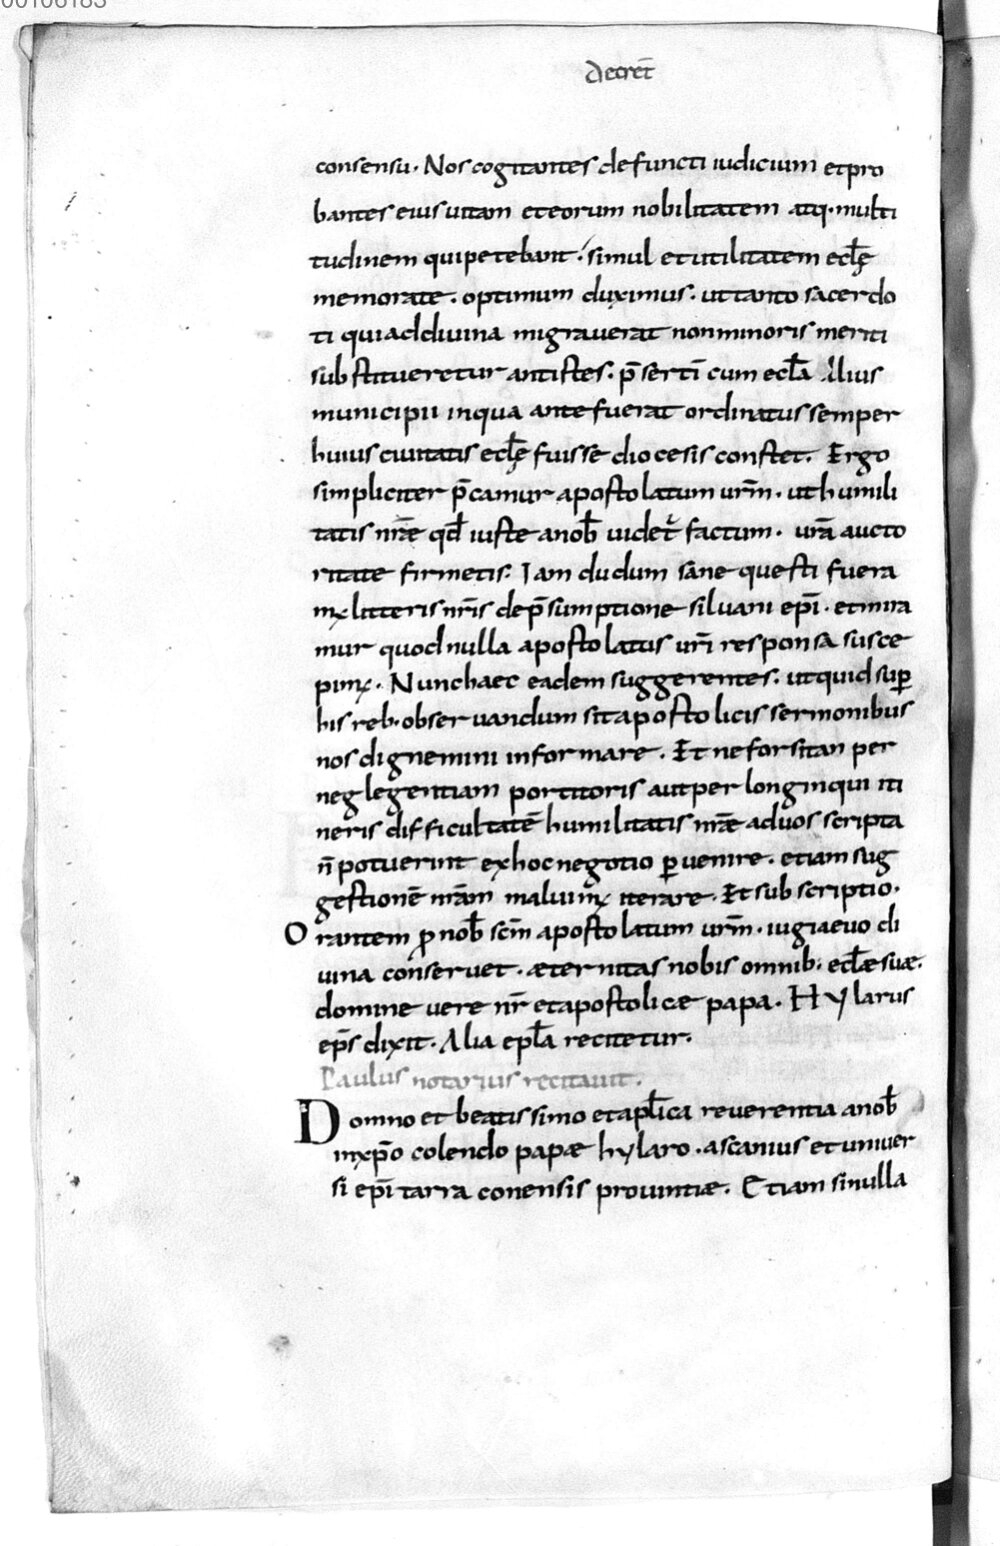 00106183
decret̄
consensu. Nos cogitantes defuncti iudicium et pro
bantes eius uitam et eorum nobilitatem atq· multi
tudinem qui petebant. simul et utilitatem eclę̄
memorate. optimum duximus. ut tanto sacerdo
ti qui ad diuina migrauerat non minoris meriti
substitueretur antistes. p̄sertī cum ecl̄a illius
municipii in qua ante fuerat ordinatus semper
huius ciuitatis eclę̄ fuisse diocesis constet. Ergo
simpliciter p̄camur apostolatum ur̄m. ut humili
tatis nr̄ae qd̄ iuste a nob̄ uidet̄ factum. ur̄a aucto
ritate firmetis. Iam dudum sane questi fuera
mx litteris nr̄is de p̄sumptione siluani ep̄i. et mira
mur quod nulla apostolatus ur̄i responsa susce
pimx. Nunc haec eadem suggerentes. ut quid sup̱
his reb· obseruandum sit apostolicis sermonibus
nos dignemini informare. Et ne forsitan per
neglegentiam portitoris aut per longinqui iti
neris difficultatē humilitatis nr̄ae ad uos scripta
n̄ potuerint ex hoc negotio p̱uenire. etiam sug
gestionē nr̄am maluimx iterare. Et subscriptio.
Orantem ꝓ nob̄ sc̄m apostolatum ur̄m. iugi aeuo di
uina conseruet. æternitas nobis omnib· ecl̄æ suæ.
domine uere nr̄ et apostolicæ papa. Hylarus
ep̄s dixit. Alia epl̄a recitetur.
Paulus notarius recitauit.
Domno et beatissimo et apl̄ica reuerentia a nob̄
in xp̄o colendo papæ hylaro. ascanius et uniuer
si ep̄i tarraconensis prouintiæ. Etiam si nulla